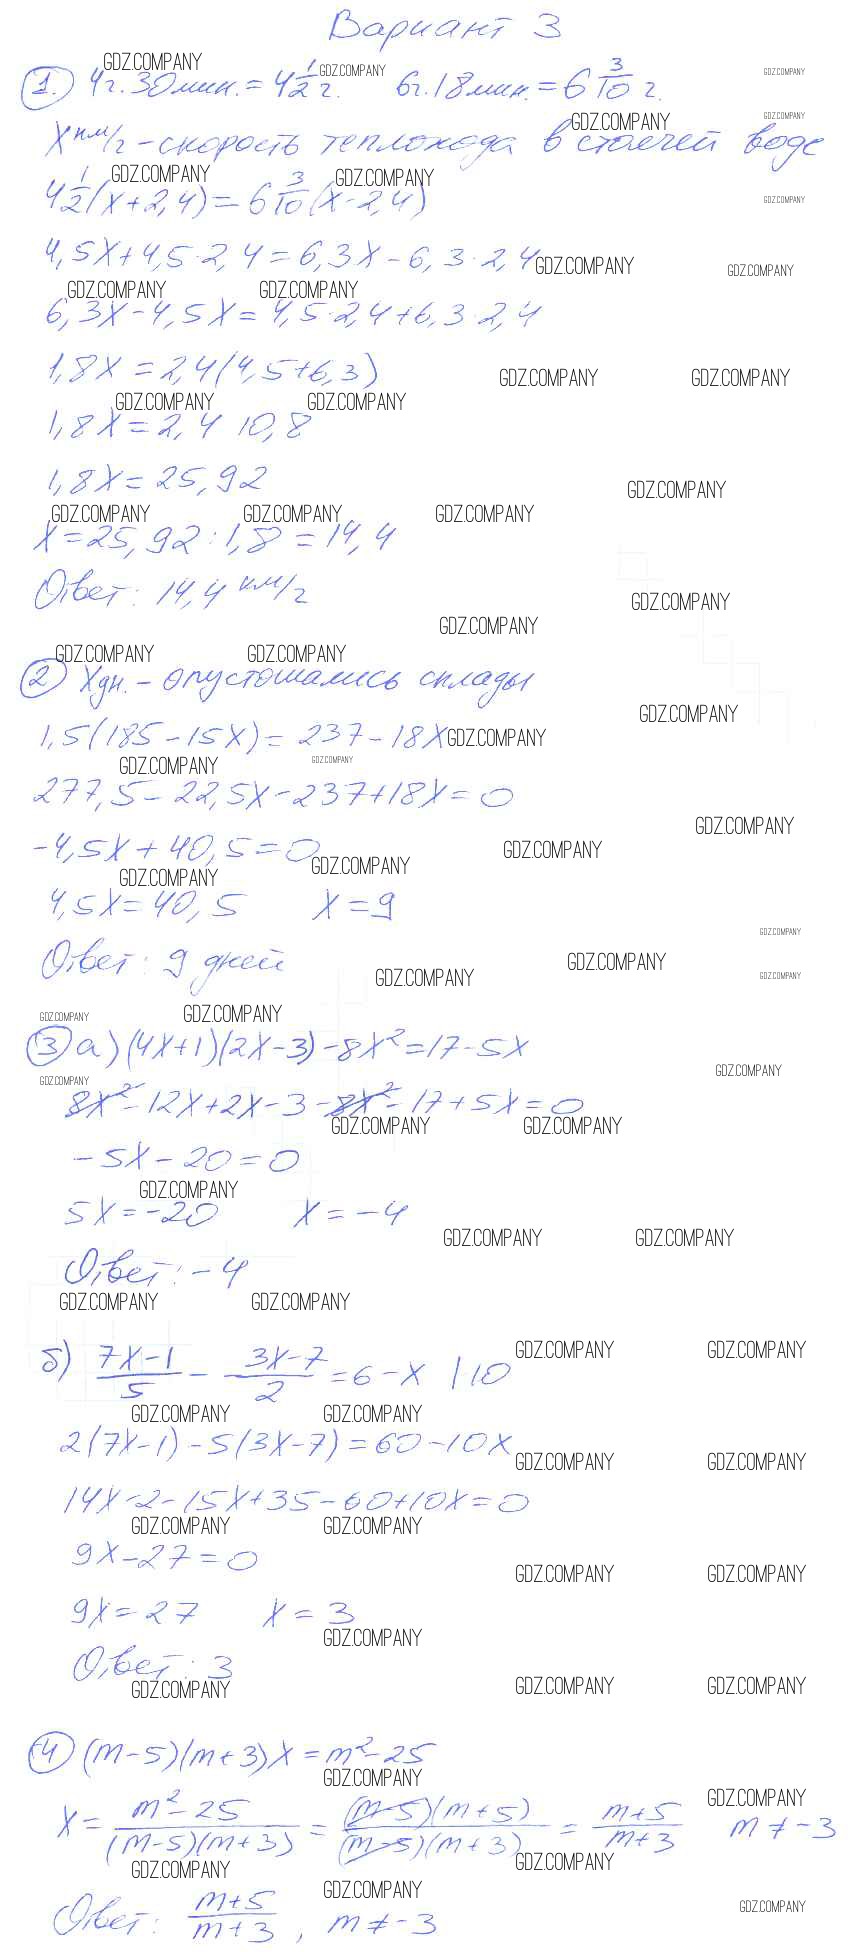 Вариант 3
1. 4 ч. 30 мин. = 4 1/2 ч. 6 ч. 18 мин. = 6 3/10 ч.
X км/ч - скорость теплохода в стоячей воде
4 1/2 (x+2,4) = 6 3/10 (x-2,4)
4,5x+4,5·2,4=6,3x-6,3·2,4
6,3x-4,5x=4,5·2,4+6,3·2,4
1,8x=2,4(4,5+6,3)
1,8x=2,4 10,8
1,8x=25,92
x=25,92:1,8=14,4
Ответ: 14,4 км/ч
2 X дн. - опустошались склады
1,5(185-15x)=237-18x
277,5-22,5x-237+18x=0
-4,5x+40,5=0
4,5x=40,5 x=9
Ответ: 9 дней
3 а) (4x+1)(2x-3)-8x²=17-5x
8x²-12x+2x-3-8x²-17+5x=0
-5x-20=0
5x=-20 x=-4
Ответ: -4
б) (7x-1)/5 - (3x-7)/2 = 6-x |10
2(7x-1)-5(3x-7)=60-10x
14x-2-15x+35-60+10x=0
9x-27=0
9x=27 x=3
Ответ: 3
4 (m-5)(m+3)x=m²-25
x = (m²-25)/((m-5)(m+3)) = ((m-5)(m+5))/((m-5)(m+3)) = (m+5)/(m+3) m≠-3
Ответ: (m+5)/(m+3), m≠-3
GDZ.COMPANY